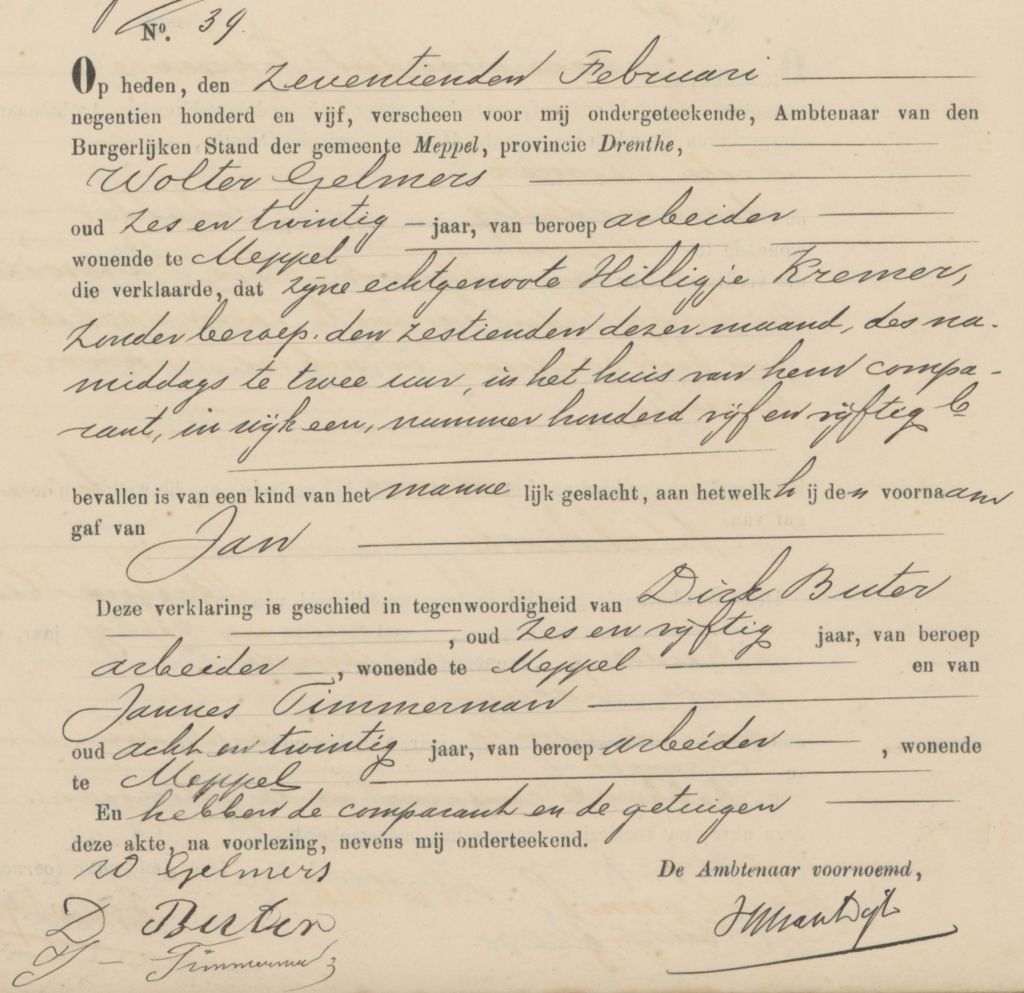 No. 39.
Op heden, den zeventienden Februari
negentien honderd en vijf, verscheen voor mij ondergeteekende, Ambtenaar van den
Burgerlijken Stand der gemeente Meppel, provincie Drenthe,
Wolter Gelmers
oud zes en twintig jaar, van beroep arbeider
wonende te Meppel
die verklaarde, dat zijne echtgenoote Hilligje Kremer,
zonder beroep, den zestienden dezer maand, des na-
middags te twee uur, in het huis van hem compa-
rant, in wijk een, nummer honderd vijf en vijftig b
bevallen is van een kind van het manne lijk geslacht, aan hetwelk hij den voornaam
gaf van Jan
Deze verklaring is geschied in tegenwoordigheid van Dirk Buter
, oud zes en vijftig jaar, van beroep
arbeider, wonende te Meppel en van
Jannes Timmerman
oud acht en twintig jaar, van beroep arbeider, wonende
te Meppel
En hebben de comparant en de getuigen
deze akte, na voorlezing, nevens mij onderteekend.
W Gelmers
De Ambtenaar voornoemd,
D Buter
J Timmerman